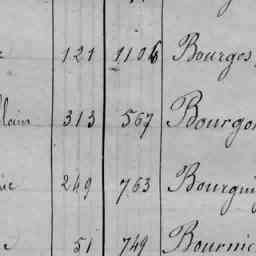 121 1106 Bourges
313 567 Bourgo
249 763 Bourgui
51 749 Bournic